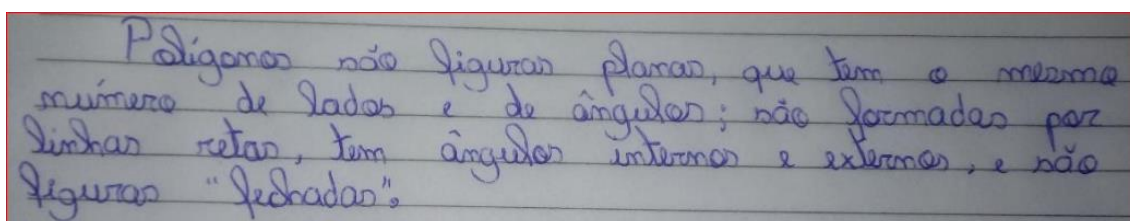 Polígonos são figuras planas, que tem o mesmo
número de lados e de ângulos; são formadas por
linhas retas, tem ângulos internos e externos, e são
figuras "fechadas".